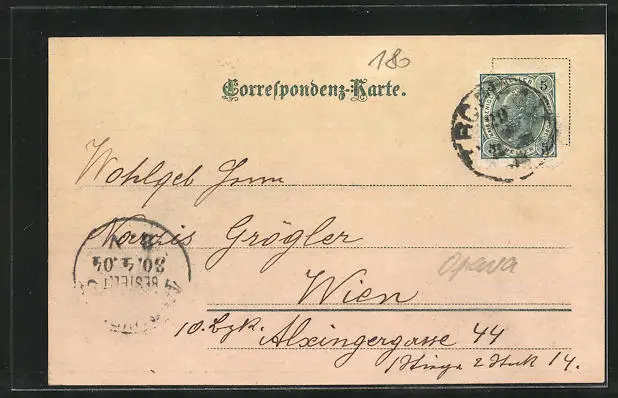 180
Correspondenz-Karte.
5
Wohlgeb Herrn
Narcis Grögler
Opava
Wien
10. Bzk. Alxingergasse 44
2 Stock 14.
30.4.04
BESTELLT